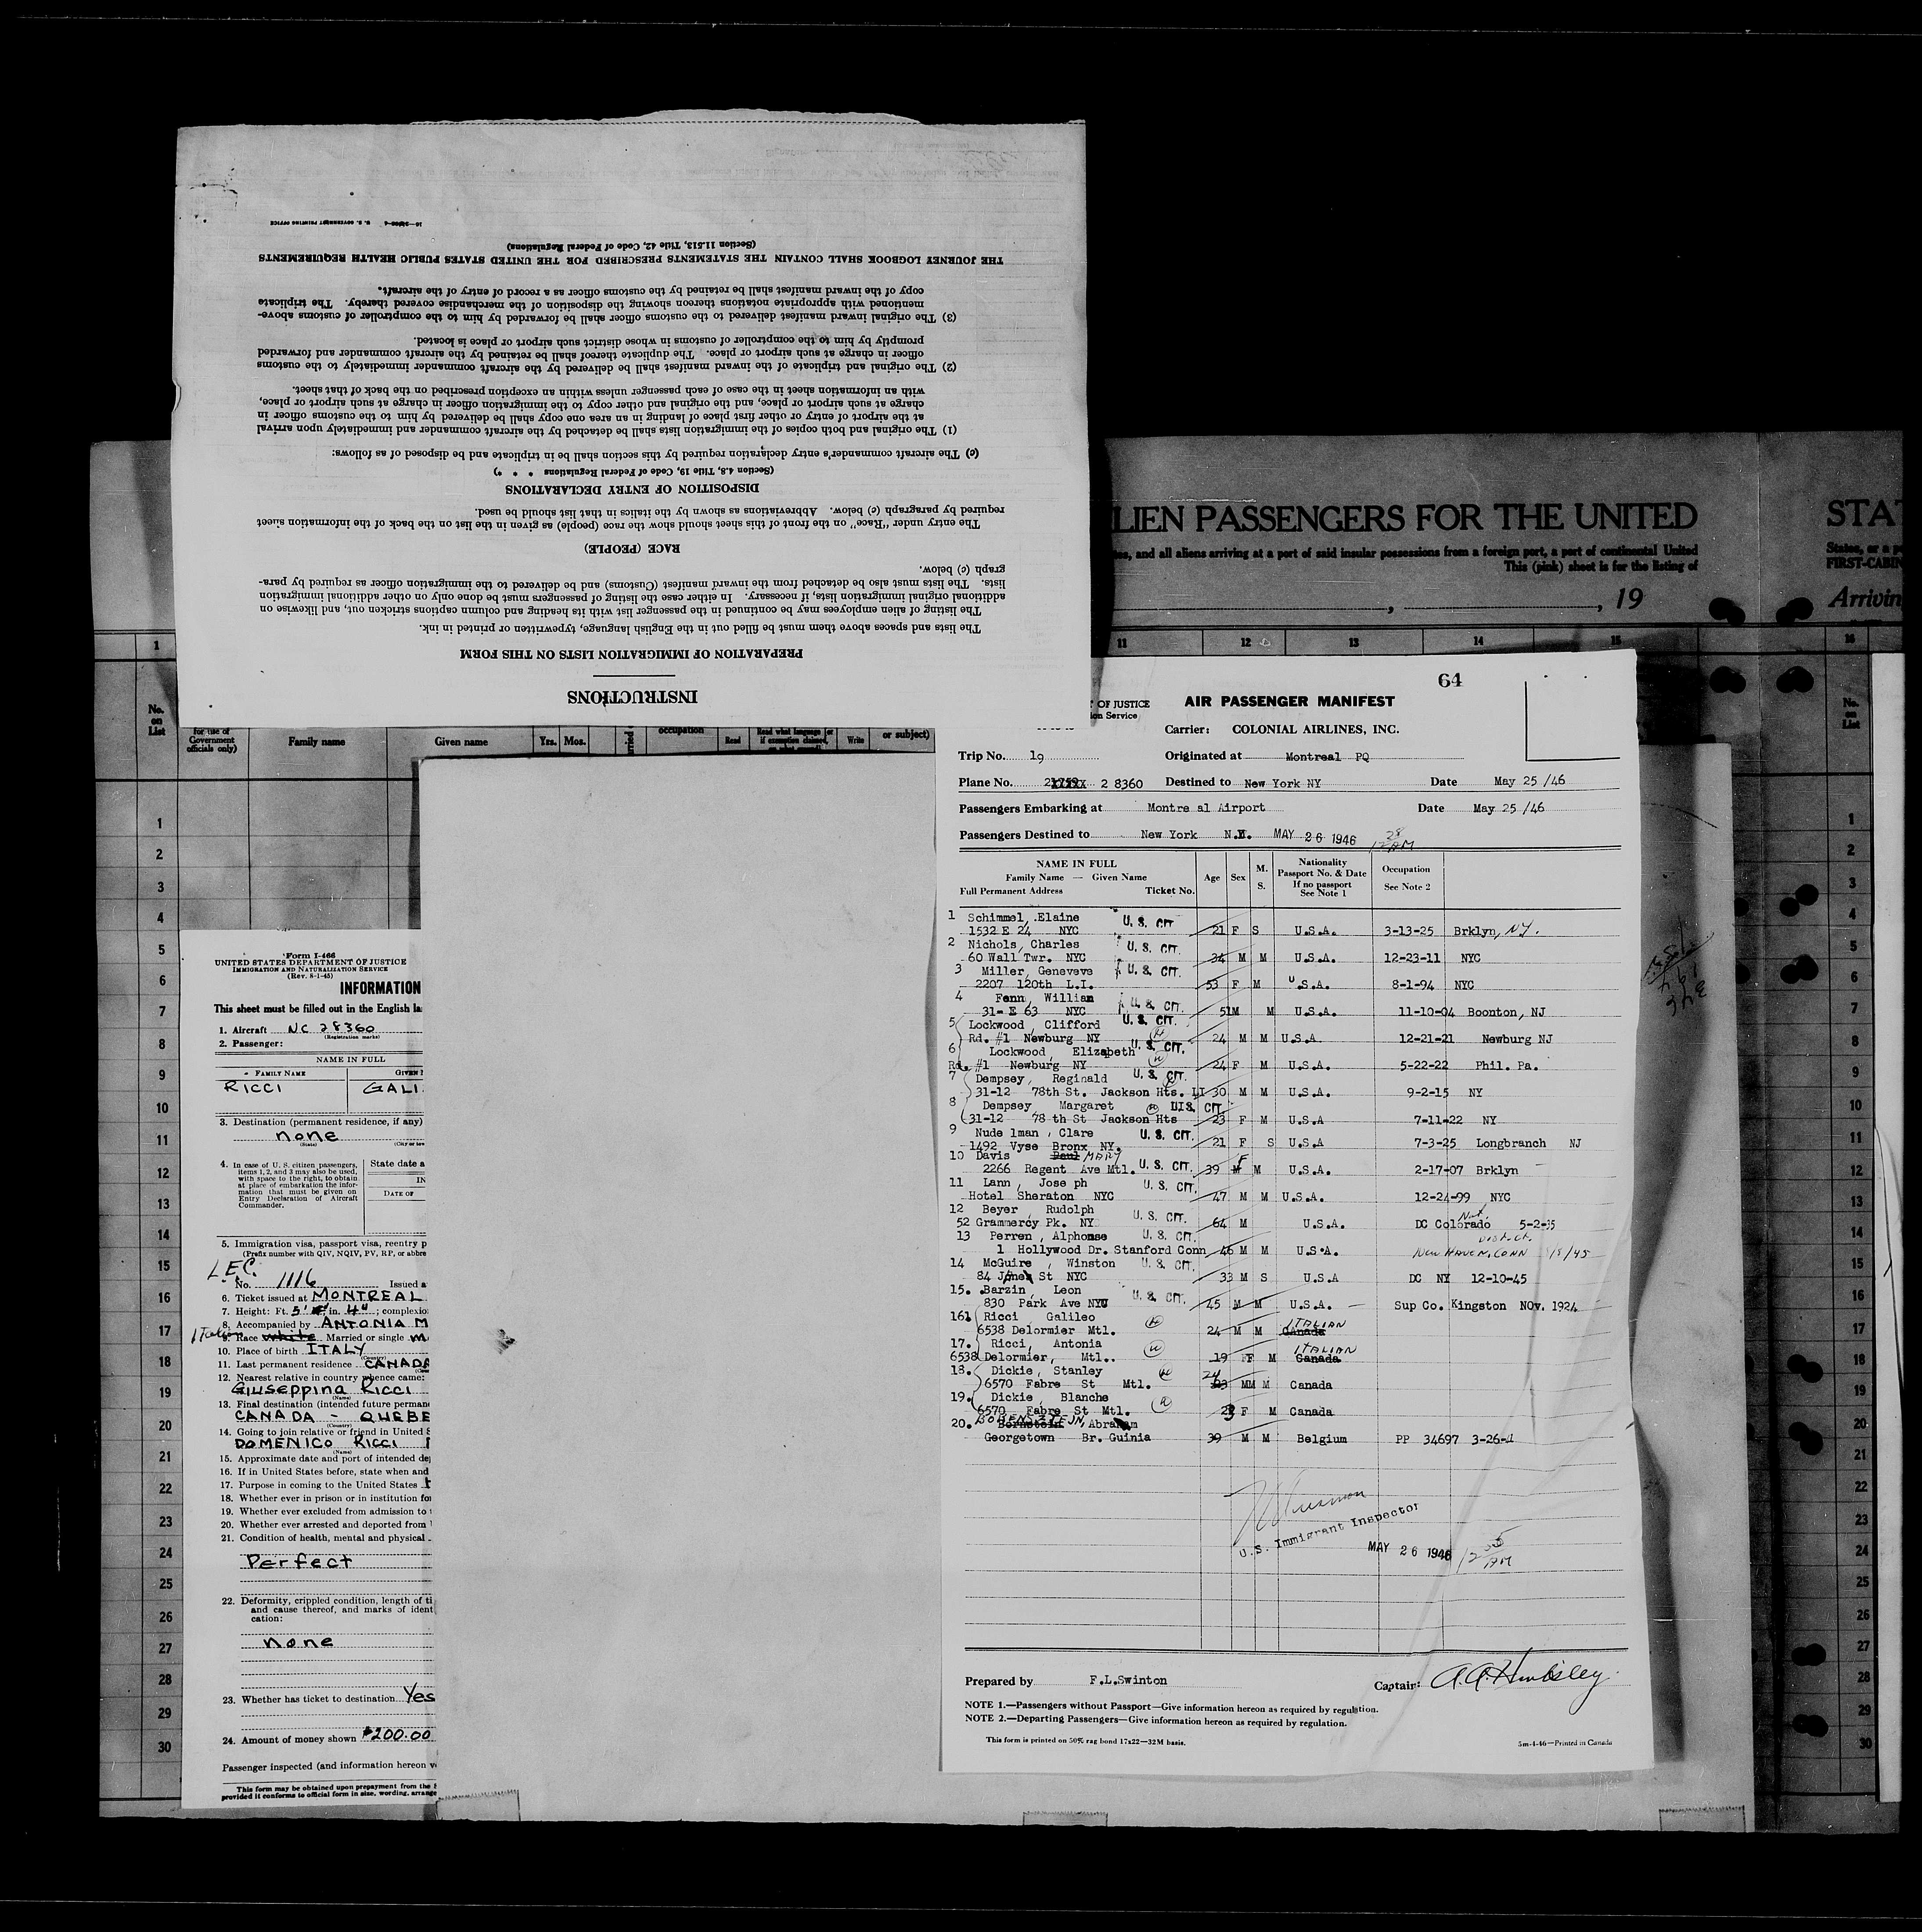 INSTRUCTIONS
PREPARATION OF IMMIGRATION LISTS ON THIS FORM
The lists and spaces above them must be filled out in the English language, typewritten or printed in ink.
The listing of alien employees may be continued in the passenger list with its heading and column captions stricken out, and likewise on
additional original immigration lists, if necessary. In either case the listing of passengers must be done only on other additional immigration
lists. The lists must also be detached from the inward manifest (Customs) and be delivered to the immigration officer as required by para-
graph (c) below.
RACE (PEOPLE)
The entry under "Race" on the front of this sheet should show the race (people) as given in the list on the back of the information sheet
required by paragraph (c) below. Abbreviations as shown by the italics in that list should be used.
DISPOSITION OF ENTRY DECLARATIONS
(Section 4.8, Title 19, Code of Federal Regulations * * *)
(c) The aircraft commander's entry declaration required by this section shall be in triplicate and be disposed of as follows:
(1) The original and both copies of the immigration lists shall be detached by the aircraft commander and immediately upon arrival
at the airport of entry or other first place of landing in an area one copy shall be delivered by him to the customs officer in
charge at such airport or place, and the original and other copy to the immigration officer in charge at such airport or place,
with an information sheet in the case of each passenger unless within an exception prescribed on the back of that sheet.
(2) The original and triplicate of the inward manifest shall be delivered by the aircraft commander immediately to the customs
officer in charge at such airport or place. The duplicate thereof shall be retained by the aircraft commander and forwarded
promptly by him to the comptroller of customs in whose district such airport or place is located.
(3) The original inward manifest delivered to the customs officer shall be forwarded by him to the comptroller of customs above-
mentioned with appropriate notations thereon showing the disposition of the merchandise covered thereby. The triplicate
copy of the inward manifest shall be retained by the customs officer as a record of entry of the aircraft.
THE JOURNEY LOGBOOK SHALL CONTAIN THE STATEMENTS PRESCRIBED FOR THE UNITED STATES PUBLIC HEALTH REQUIREMENTS
(Section 11.513, Title 42, Code of Federal Regulations)
U. S. GOVERNMENT PRINTING OFFICE
LIEN PASSENGERS FOR THE UNITED
STAT
tes, and all aliens arriving at a port of said insular possessions from a foreign port, a part of continental United
This (pink) sheet is for the listing of
States, or a p
FIRST-CABIN
, 19
Arrivin
1 11 12 13 14 15 16
No. on List
for use of Government officials only)
Family name
Given name
Yrs. Mos.
occupation
Read
Read what language [or if exemption claimed,
Write
or subject)
No. on List
1
2
3
4
5
6
7
8
9
10
11
12
13
14
15
16
17
18
19
20
21
22
23
24
25
26
27
28
29
30
Form I-466
UNITED STATES DEPARTMENT OF JUSTICE
IMMIGRATION AND NATURALIZATION SERVICE
(Rev. 8-1-45)
INFORMATION
This sheet must be filled out in the English la
1. Aircraft NC 28360
(Registration marks)
2. Passenger:
NAME IN FULL
FAMILY NAME GIVEN
RICCI GALI
3. Destination (permanent residence, if any)
none
(State)
4. In case of U. S. citizen passengers,
items 1, 2, and 3 may also be used,
with space to the right, to obtain
at place of embarkation the infor-
mation that must be given on
Entry Declaration of Aircraft
Commander.
State date a
IN
DATE OF
5. Immigration visa, passport visa, reentry p
(Prefix number with QIV, NQIV, PV, RP, or abbre
L.E.C.
No. 1116 Issued a
6. Ticket issued at MONTREAL
7. Height: Ft. 5' in. 4" ; complexio
8. Accompanied by ANTONIA M
Italian
9. Race white Married or single m
10. Place of birth ITALY
(Country)
11. Last permanent residence CANADA
12. Nearest relative in country whence came:
Giuseppina Ricci
(Name)
13. Final destination (intended future perman
CANADA - QUEBE
(Country)
14. Going to join relative or friend in United S
DOMENICO RICCI
(Name)
15. Approximate date and port of intended de
16. If in United States before, state when and
17. Purpose in coming to the United States
18. Whether ever in prison or in institution fo
19. Whether ever excluded from admission to
20. Whether ever arrested and deported from
21. Condition of health, mental and physical
Perfect
22. Deformity, crippled condition, length of ti
and cause thereof, and marks of ident
cation:
none
23. Whether has ticket to destination Yes
24. Amount of money shown $200.00
Passenger inspected (and information hereon v
This form may be obtained upon prepayment from the
provided it conforms to official form in size, wording, arrange
64
T OF JUSTICE
ion Service
AIR PASSENGER MANIFEST
Carrier: COLONIAL AIRLINES, INC.
Trip No. 19 Originated at Montreal PQ
Plane No. 2 8360 Destined to New York NY Date May 25 /46
Passengers Embarking at Montre al Airport Date May 25 /46
Passengers Destined to New York N.Y. MAY 26 1946 12 28 AM
NAME IN FULL
Family Name — Given Name
Full Permanent Address Ticket No.
Age Sex M. S.
Nationality
Passport No. & Date
If no passport
See Note 1
Occupation
See Note 2
1 Schimmel, Elaine U. S. CIT.
1532 E 24 NYC 21 F S U.S.A. 3-13-25 Brklyn, N.Y.
2 Nichols, Charles U. S. CIT.
60 Wall Twr. NYC 34 M M U.S.A. 12-23-11 NYC
3 Miller, Geneveve U. S. CIT.
2207 120th L.I. 53 F M U.S.A. 8-1-94 NYC
4 Fenn, William U. S. CIT.
31- E 63 NYC 51M M U.S.A. 11-10-04 Boonton, NJ
5 Lockwood, Clifford U. S. CIT.
Rd. #1 Newburg NY 24 M M U.S.A. 12-21-21 Newburg NJ
6 Lockwood, Elizabeth U. S. CIT.
Rd. #1 Newburg NY 24 F M U.S.A. 5-22-22 Phil. Pa.
7 Dempsey, Reginald U. S. CIT.
31-12 78th St. Jackson Hts. LI 30 M M U.S.A. 9-2-15 NY
8 Dempsey Margaret U.S. CIT.
31-12 78 th St Jackson Hts 23 F M U.S.A 7-11-22 NY
9 Nude lman, Clare U. S. CIT.
1492 Vyse Bronx NY. 21 F S U.S.A 7-3-25 Longbranch NJ
10 Davis Paul MARY U. S. CIT.
2266 Regent Ave Mtl. 39 F M U.S.A. 2-17-07 Brklyn
11 Lann, Jose ph U. S. CIT.
Hotel Sheraton NYC 47 M M U.S.A. 12-24-99 NYC
12 Beyer, Rudolph U. S. CIT.
52 Grammercy Pk. NY 64 M U.S.A. DC Colorado Nat. 5-2-35
13 Perren, Alphonse U. S. CIT.
1 Hollywood Dr. Stanford Conn 46 M M U.S.A. Dist. Ct. New Haven, Conn
14 McGuire, Winston U. S. CIT.
84 St NYC 33 M S U.S.A DC NY 12-10-45
15. Barzin, Leon U. S. CIT.
830 Park Ave NYC 45 M M U.S.A. — Sup Co. Kingston NOv. 1924
16 Ricci Galileo ITALIAN
6538 Delormier Mtl. 24 M M Canada
17. Ricci, Antonia ITALIAN
6538 Delormier, Mtl.. 19 F M Canada
18. Dickie, Stanley 24
6570 Fabre St Mtl. M M Canada
19. Dickie, Blanche
6570 Fabre St Mtl. 23 F M Canada
20. Bornstein, Abraham
Georgetown Br. Guinia 39 M M Belgium PP 34697 3-26-4
U.S. Immigrant Inspector
MAY 26 1946 12 35 AM
Prepared by F.L.Swinton Captain:
NOTE 1.—Passengers without Passport—Give information hereon as required by regulation.
NOTE 2.—Departing Passengers—Give information hereon as required by regulation.
This form is printed on 50% rag bond 17x22—32M basis. 5m-4-46—Printed in Canada
1
2
3
4
5
6
7
8
9
10
11
12
13
14
15
16
17
18
19
20
21
22
23
24
25
26
27
28
29
30